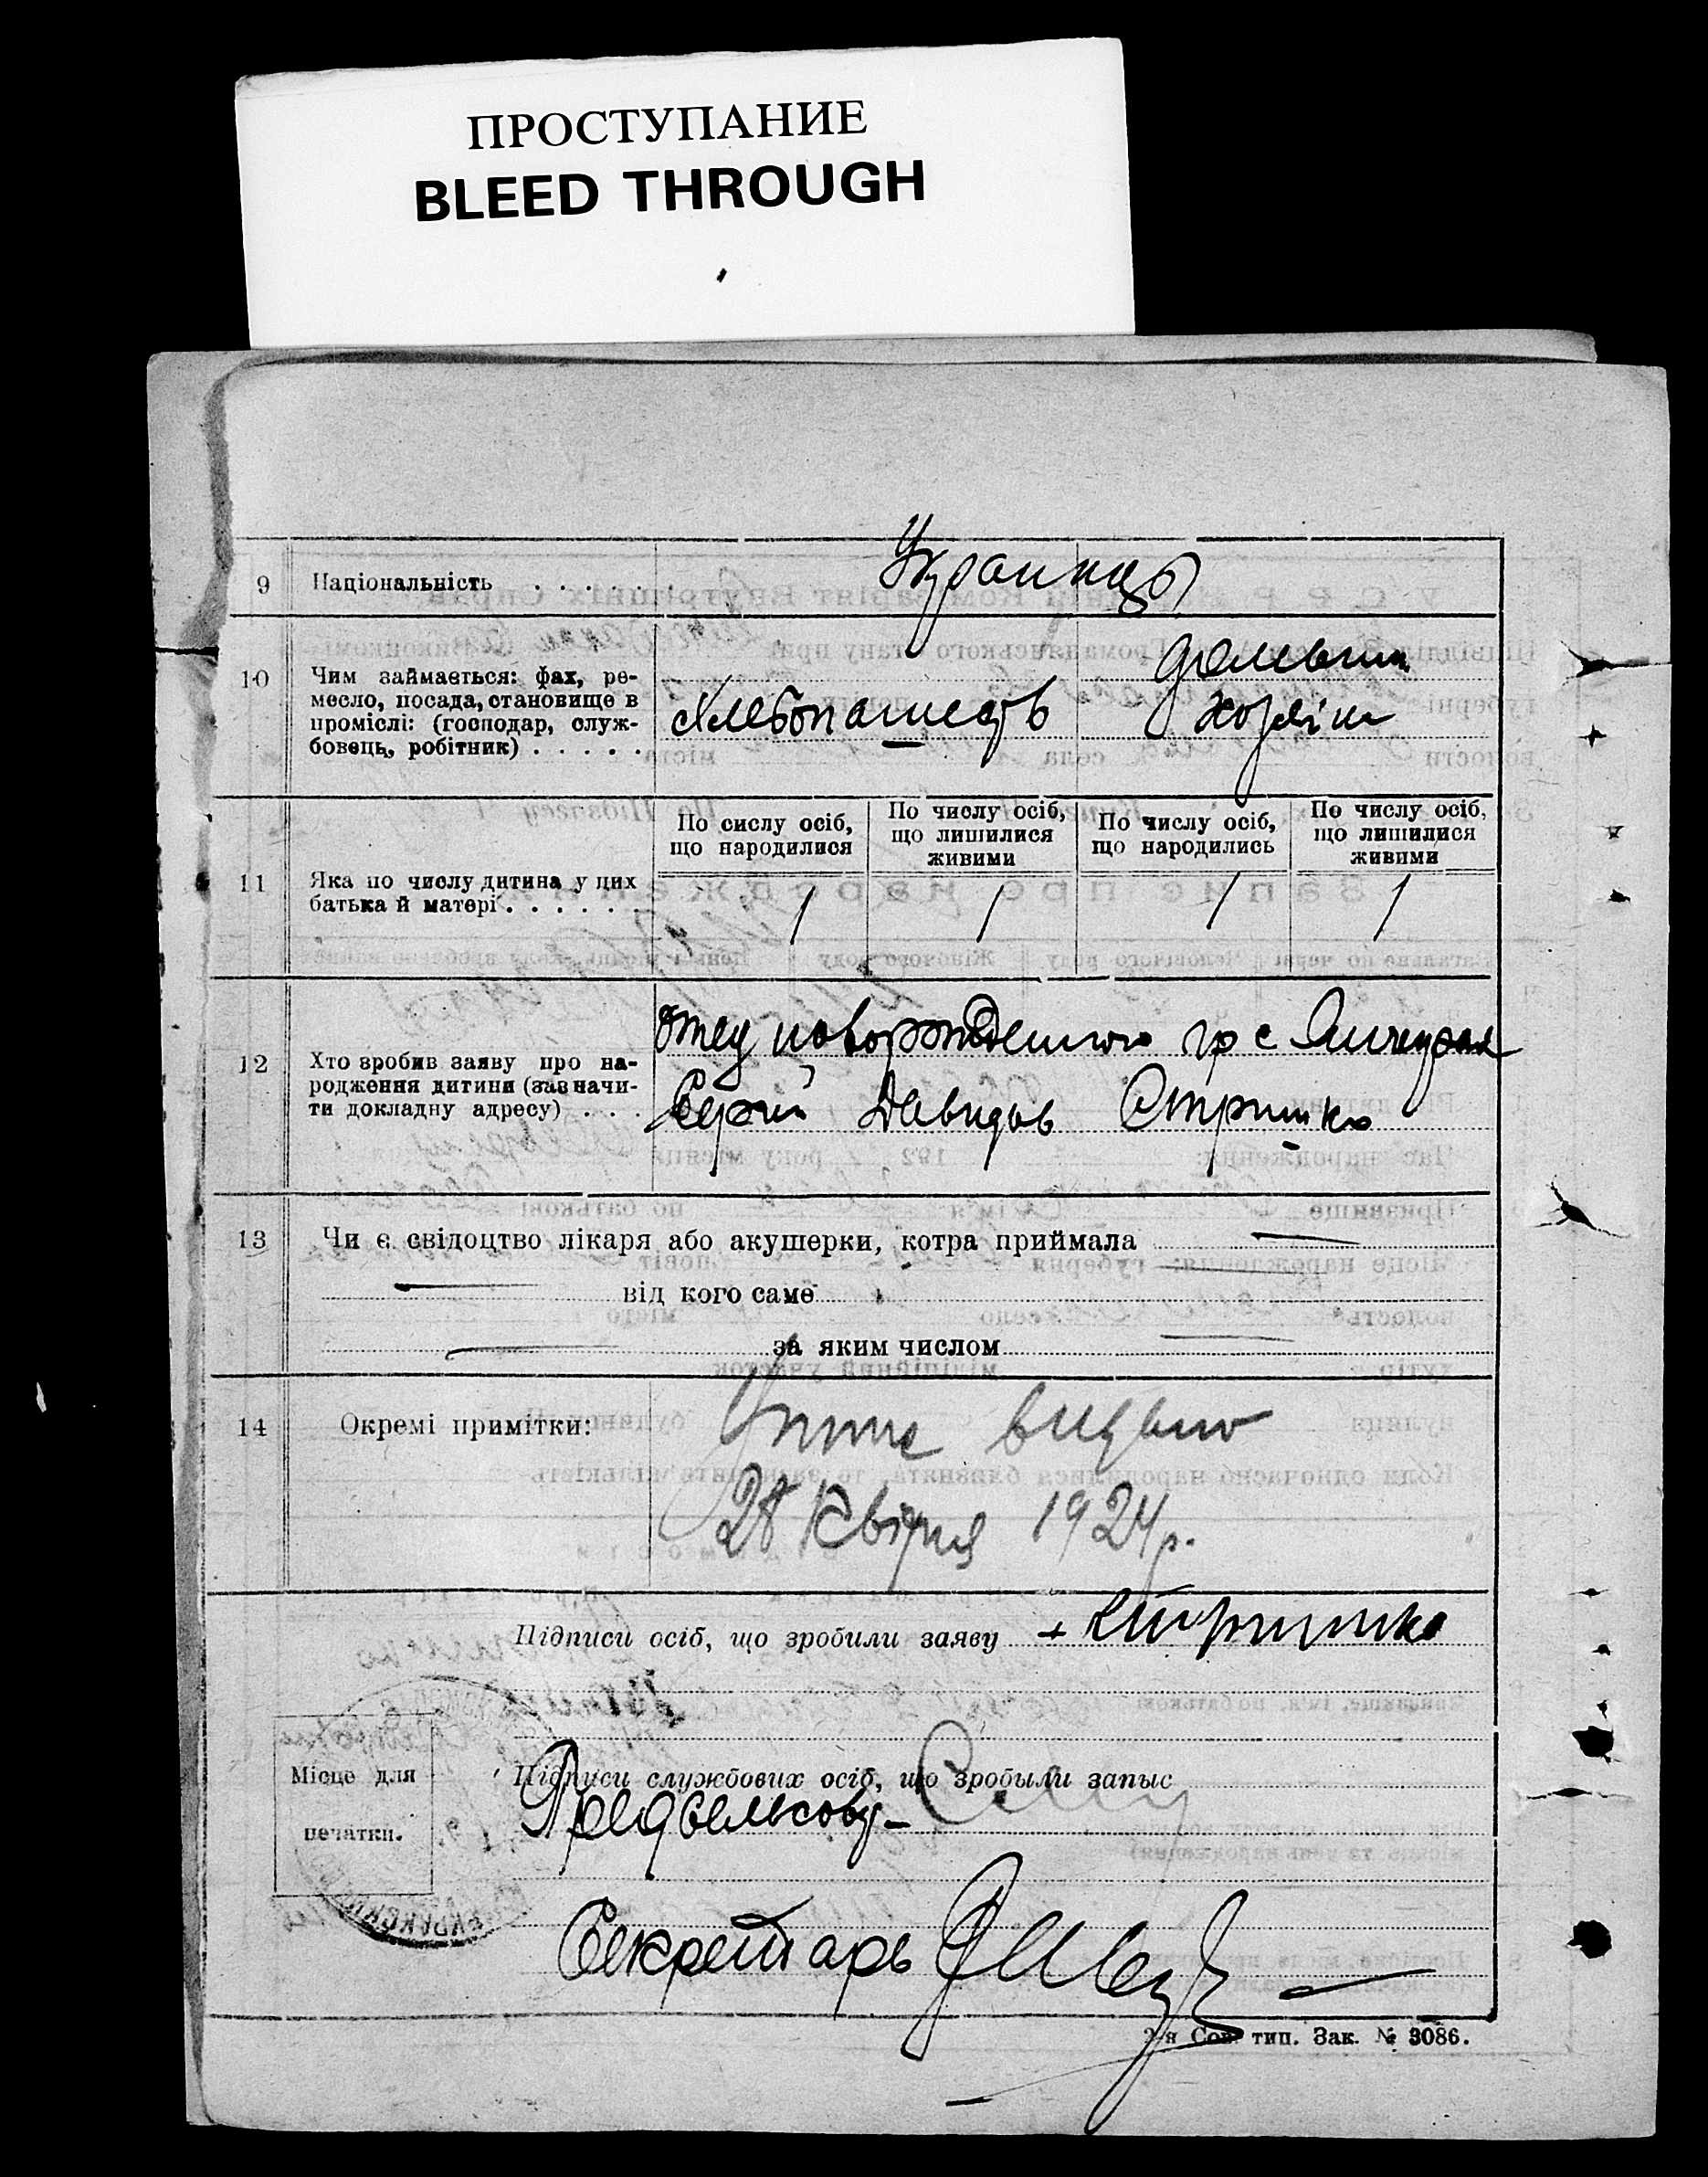 ПРОСТУПАНИЕ
BLEED THROUGH
9 Національність . . . . . . Украинцы
10 Чим займається: фах, ре-
месло, посада, становище в
проміслі: (господар, служ-
бовець, робітник) . . . . .
хлебопашець
домашн.
хозяін
11 Яка по числу дитина у цих
батька й матері . . . . . .
По сислу осіб,
що народилися
По числу осіб,
що лишилися
живими
По числу осіб,
що народились
По числу осіб,
що лишилися
живими
1 1 1 1
12 Хто зробив заяву про на-
родження дитини (зазначи-
ти докладну адресу) . . .
Отец новорожденного гр с
Сергий Давидов Стришко
13 Чи є свідоцтво лікаря або акушерки, котра приймала —
— від кого саме
— за яким числом —
14 Окремі примітки:
видано
28 Квітня 1924 р.
Підписи осіб, що зробили заяву + Стришко
Місце для
печатки.
Підписи службових осіб, що зробыли запыс
Предсельсову
Секретарь
2-я Сов. тип. Зак. № 3086.